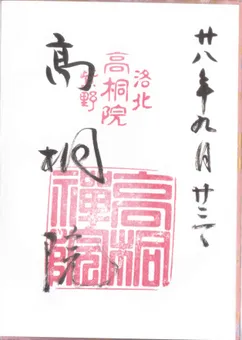 廿八年九月廿三日
洛北
高桐院
紫野
高桐院
高桐禅院